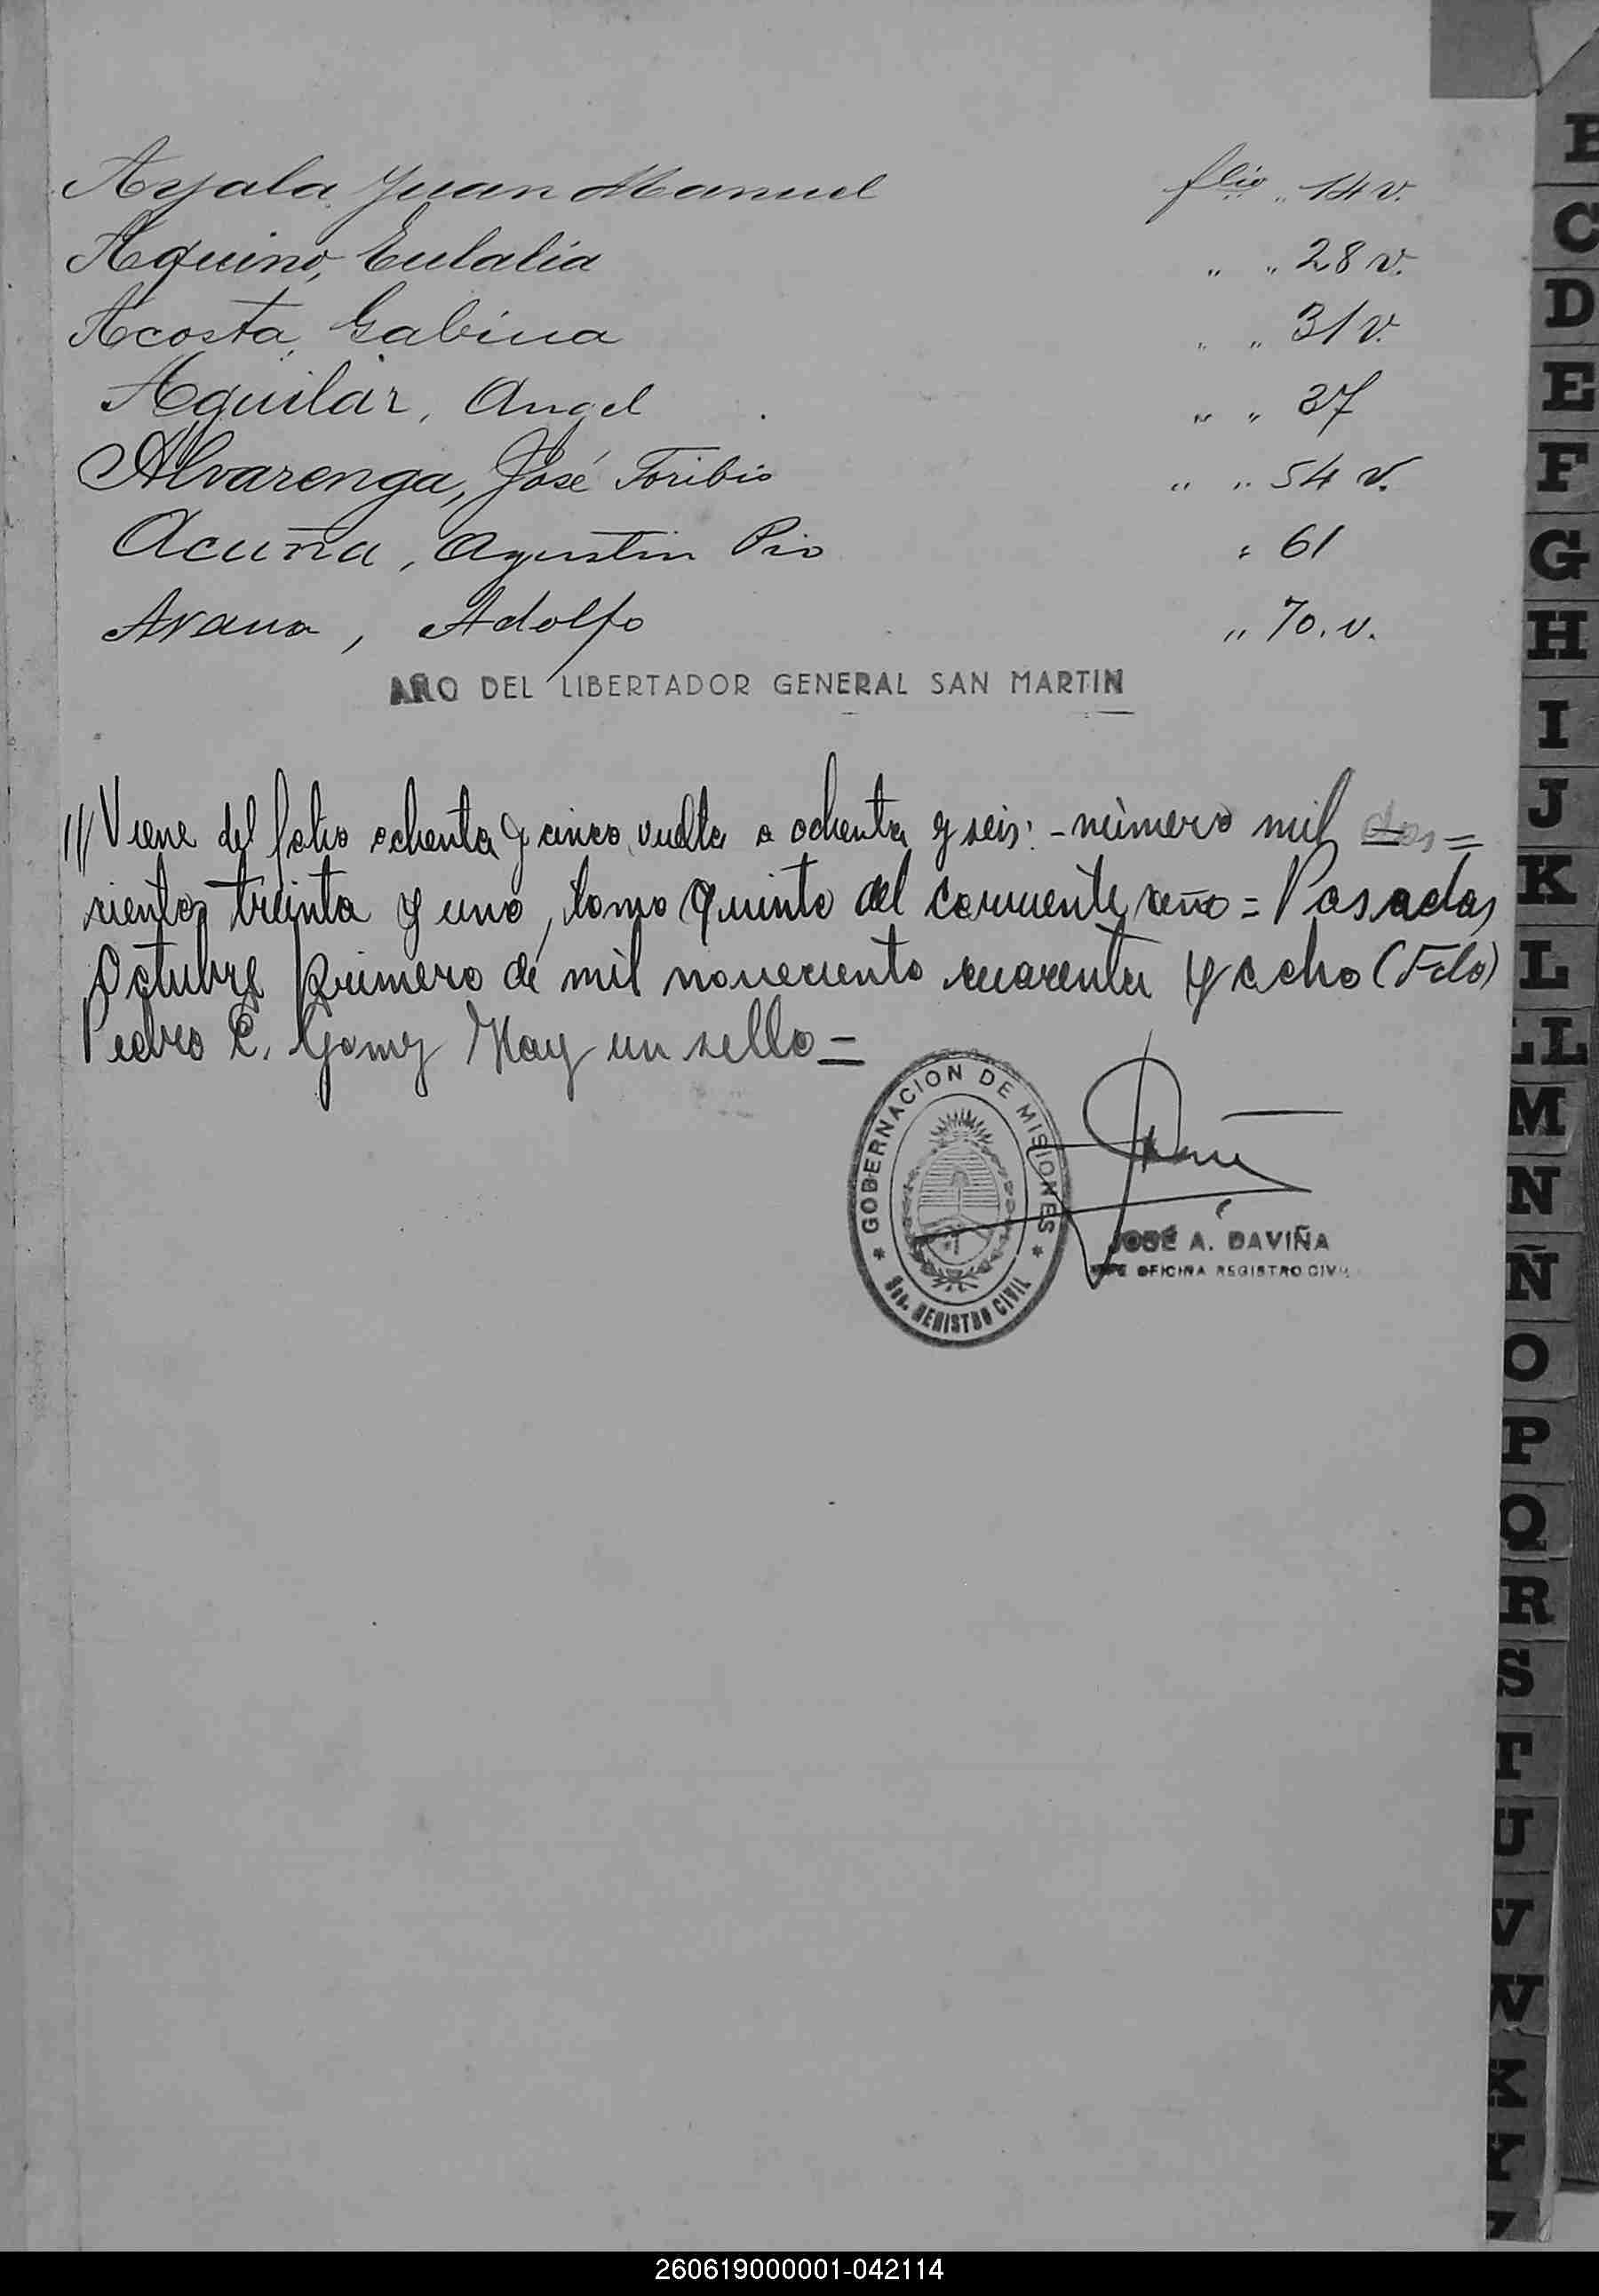 Ayala Juan Manuel folio „ 14 v.
Aquino, Eulalia „ „ 28 v.
Acosta, Gabina „ „ 31 v.
Aguilar, Angel „ „ 37
Alvarenga, José Toribio „ „ 54 v.
Acuña, Agustin Pio „ 61
Adolfo „ 70. v.
AÑO DEL LIBERTADOR GENERAL SAN MARTIN
/// Viene del folio ochenta y cinco vuelta a ochenta y seis: - número mil dos =
cientos treinta y uno, tomo quinto del corriente año = Posadas,
Octubre primero de mil novecientos cuarenta y ocho (Fdo)
Pedro C. Gomez Hay un sello =
GOBERNACION DE MISIONES
REGISTRO CIVIL
JOSÉ A. DAVIÑA
JEFE OFICINA REGISTRO CIVIL
E
C
D
E
F
G
H
I
J
K
L
LL
M
N
Ñ
O
P
Q
R
S
T
U
V
W
X
Y
Z
260619000001-042114